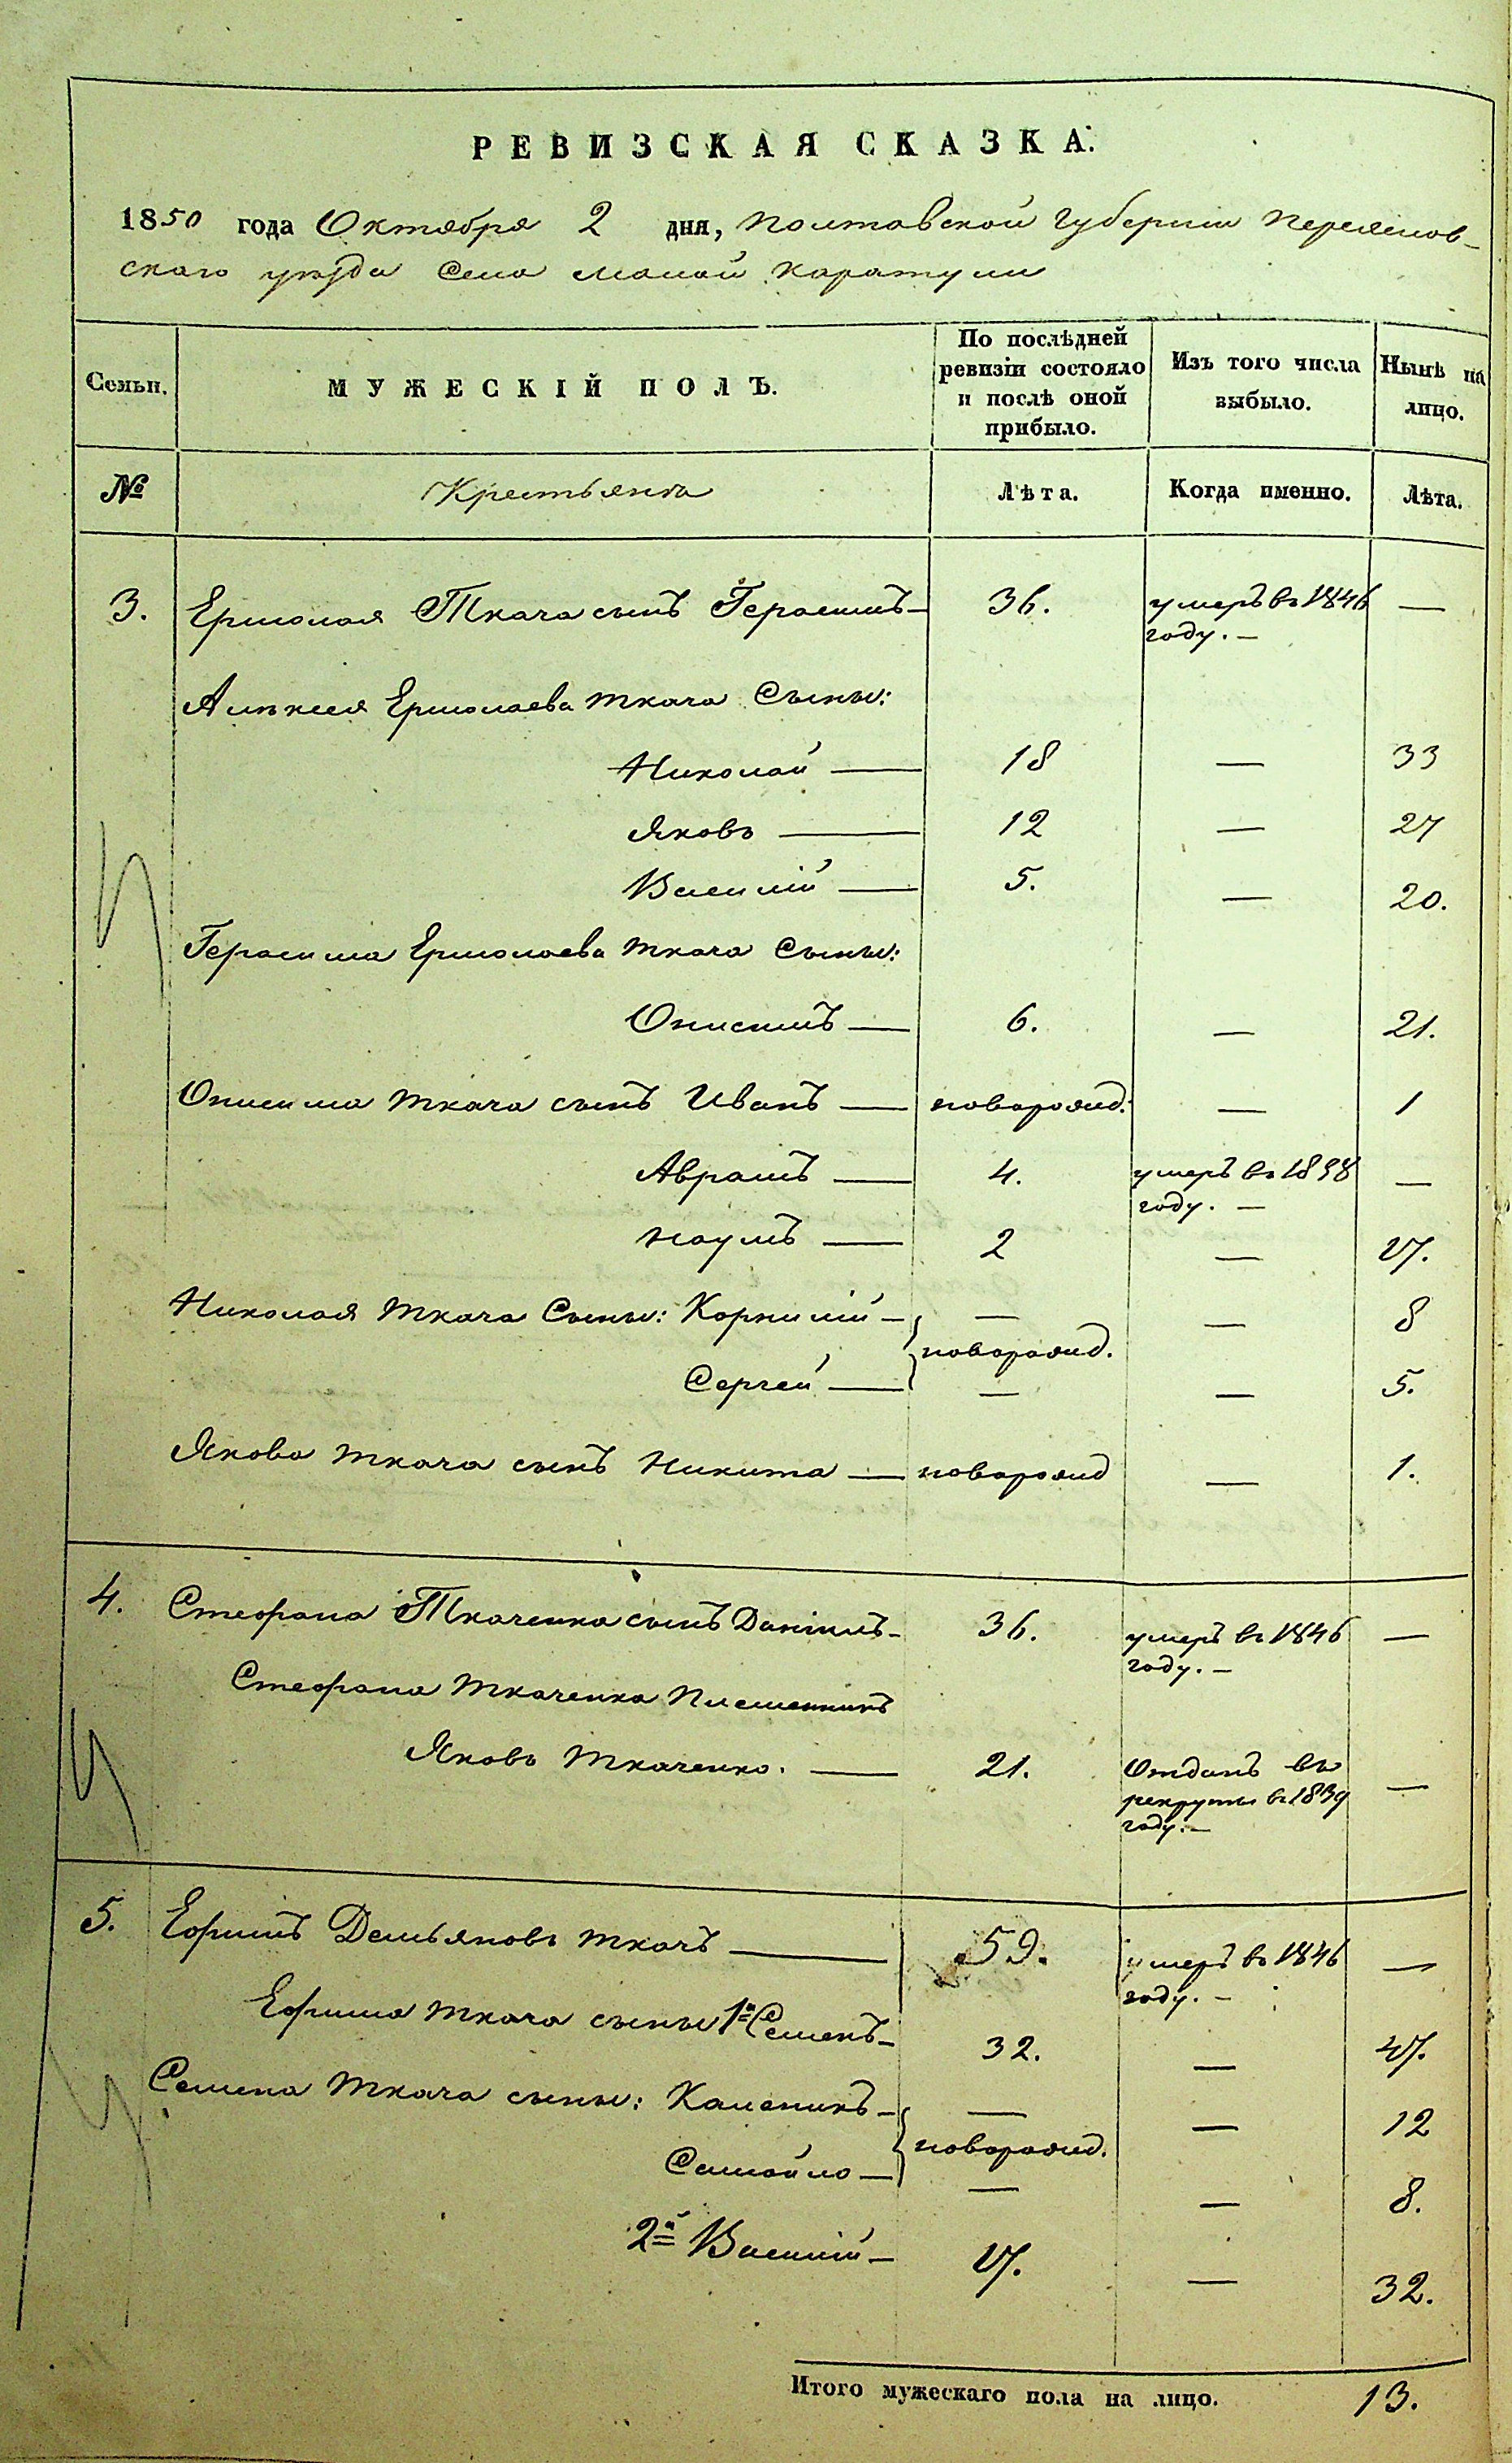 РЕВИЗСКАЯ СКАЗКА.
1850 года Октября 2 дня, Полтавской Губернии Переяслов-
скаго уѣзда Села Малой Каратули
Семьи. МУЖЕСКІЙ ПОЛЪ. По послѣдней ревизіи состояло и послѣ оной прибыло. Изъ того числа выбыло. Нынѣ на лицо.
№ Крестьянъ Лѣта. Когда именно. Лѣта.
3. Ермолая Ткача сынъ Герасимъ — 36. умеръ въ 1846 году. — —
Алѣксея Ермолаева Ткача Сыны:
Николай — 18 — 33
Яковъ — 12 — 27
Василій — 5. — 20.
Герасима Ермолаева Ткача Сыны:
Онисимъ — 6. — 21.
Онисима Ткача сынъ Иванъ — новорожд. — 1
Аврамъ — 4. умеръ въ 1838 году. — —
Наумъ — 2 — 17.
Николая Ткача Сыны: Корнилій — — — 8
новорожд.
Сергей — — — 5.
Якова Ткача сынъ Никита — новорожд — 1.
4. Стефана Ткаченка сынъ Даніилъ — 36. умеръ въ 1846 году. — —
Стефана Ткаченка Племянникъ
Яковъ Ткаченко. — 21. Отданъ въ рекруты въ 1839 году. — —
5. Ефимъ Демьяновъ Ткачъ — 59. умеръ въ 1846 году. — —
Ефима Ткача сыны 1й Семенъ — 32. — 47.
Семена Ткача сыны: Каленикъ — — — 12
новорожд.
Самойло — — — 8.
2й Василій — 17. — 32.
Итого мужескаго пола на лицо. 13.